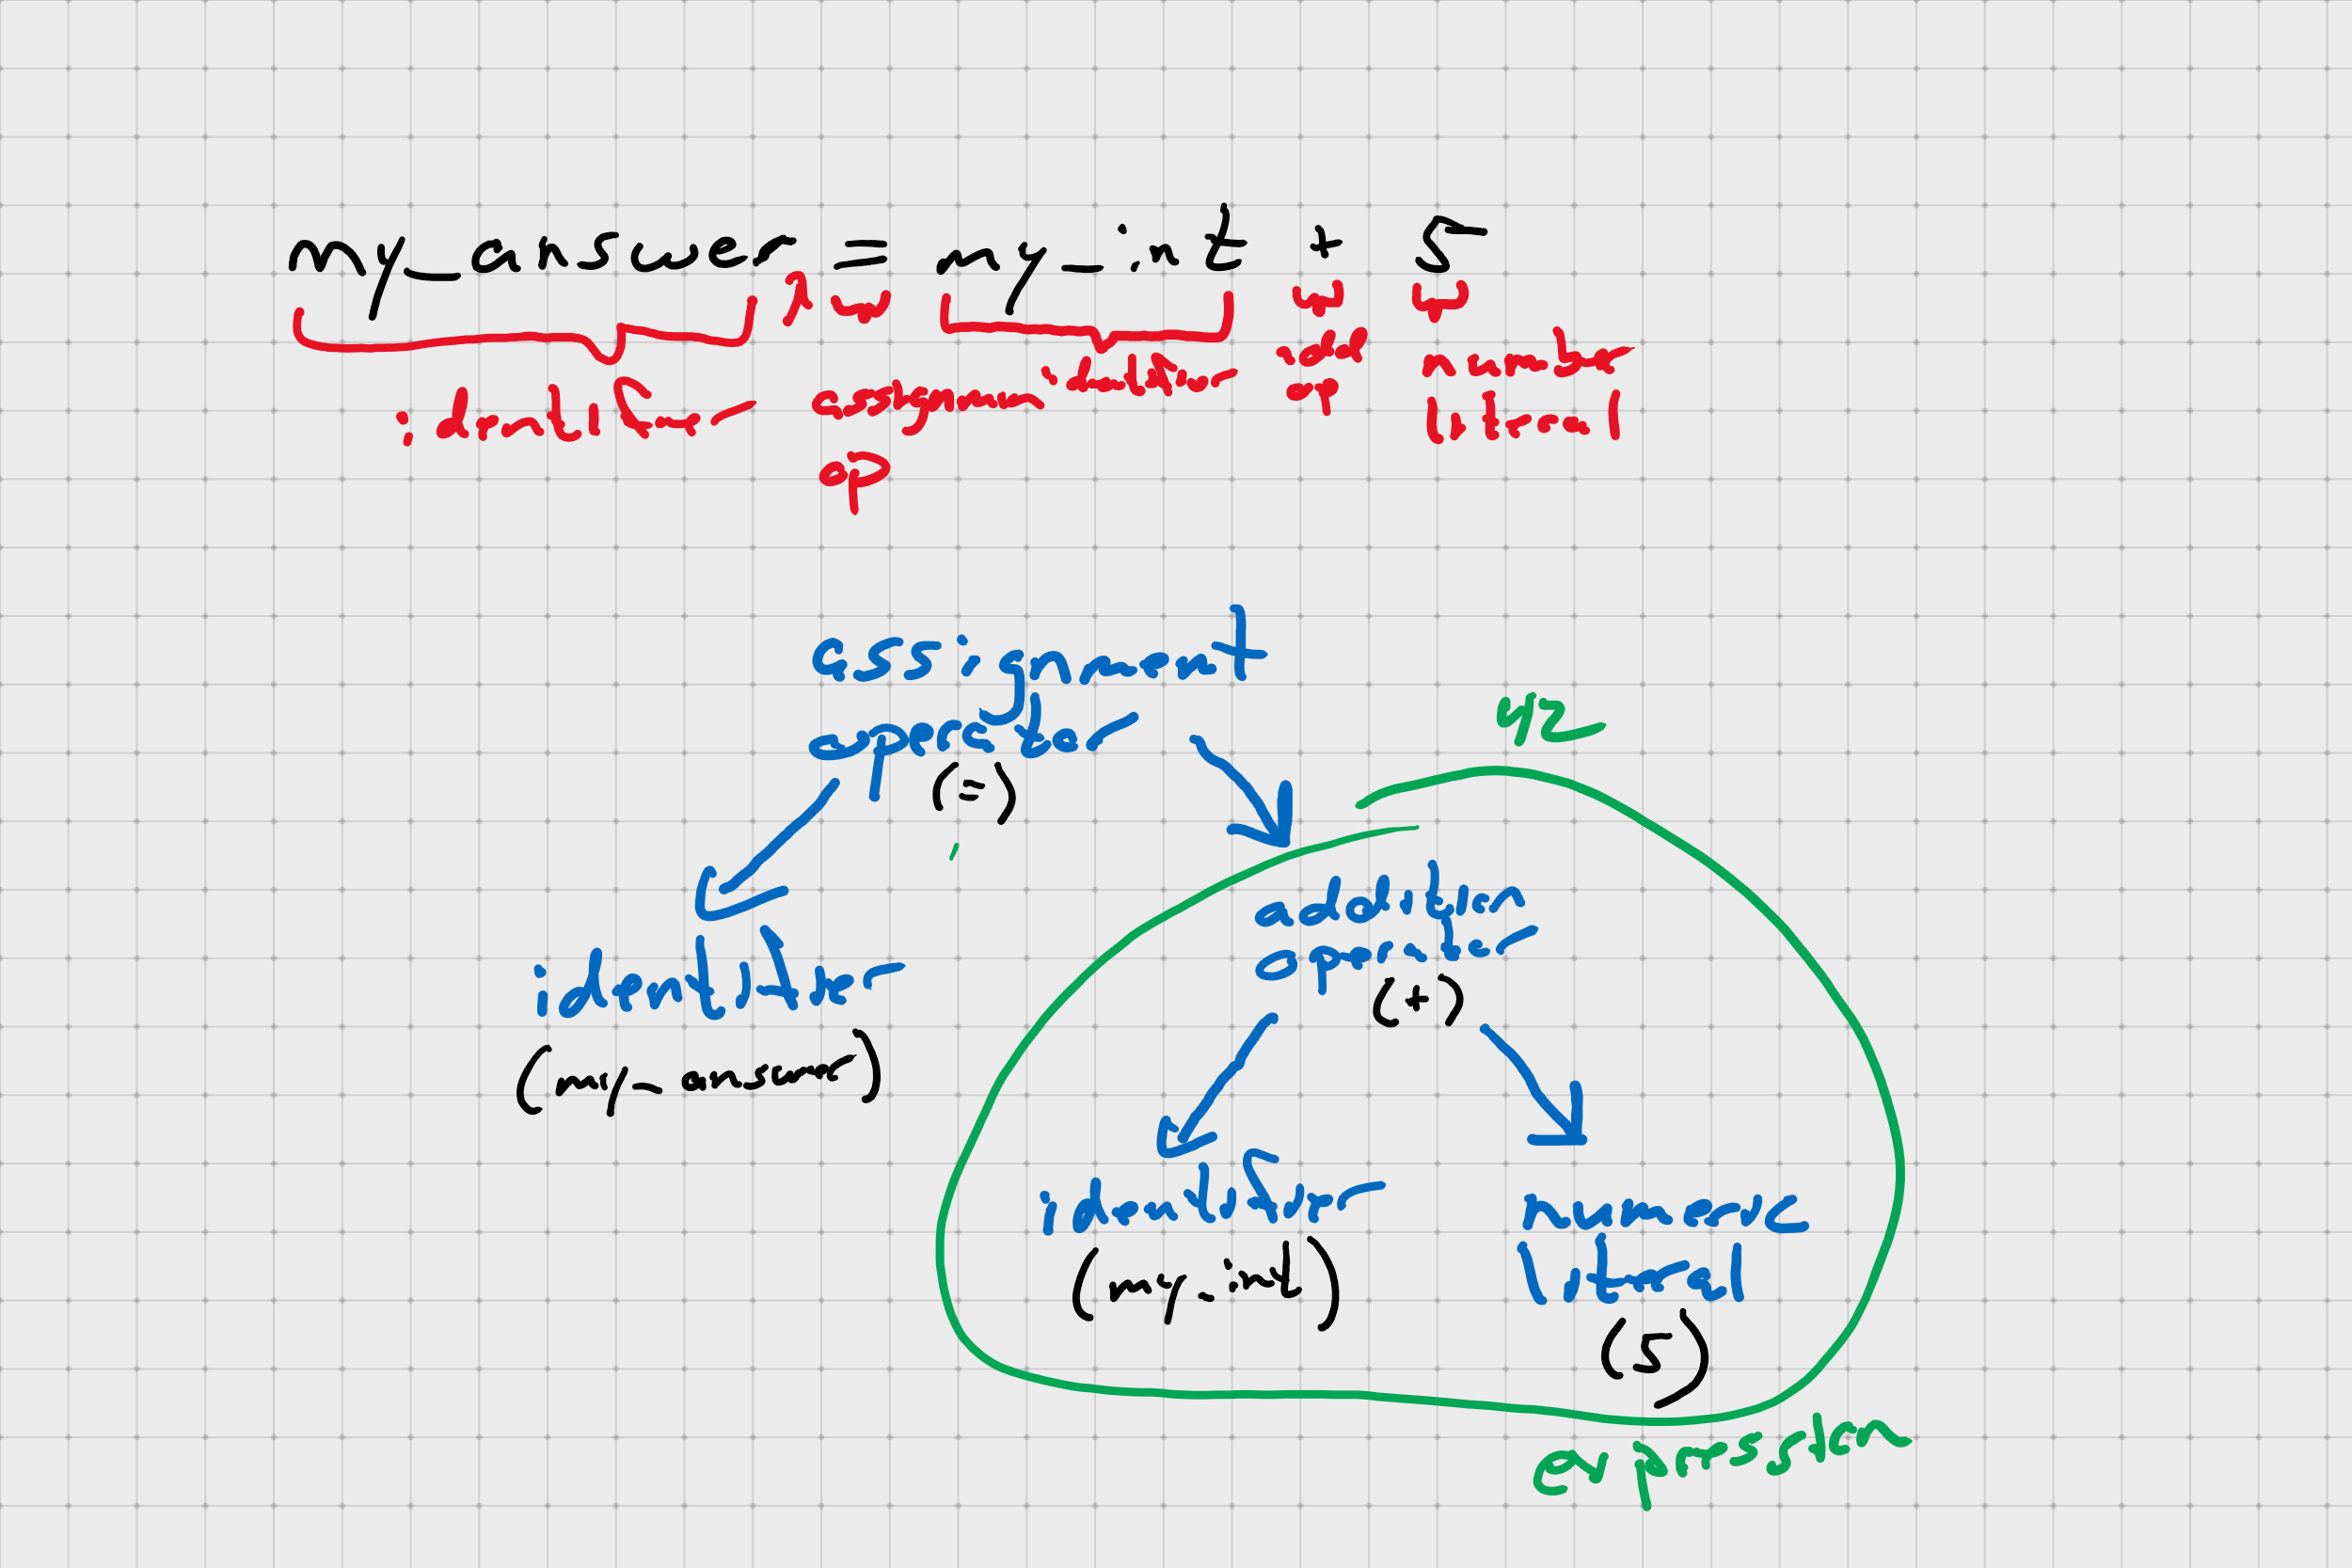 my_answer = my_int + 5
identifier
assignment
op
identifier
add
op
number
literal
assignment
operator
(=)
42
addition
operator
(+)
identifier
(my_answer)
identifier
(my_int)
numeric
literal
(5)
expression